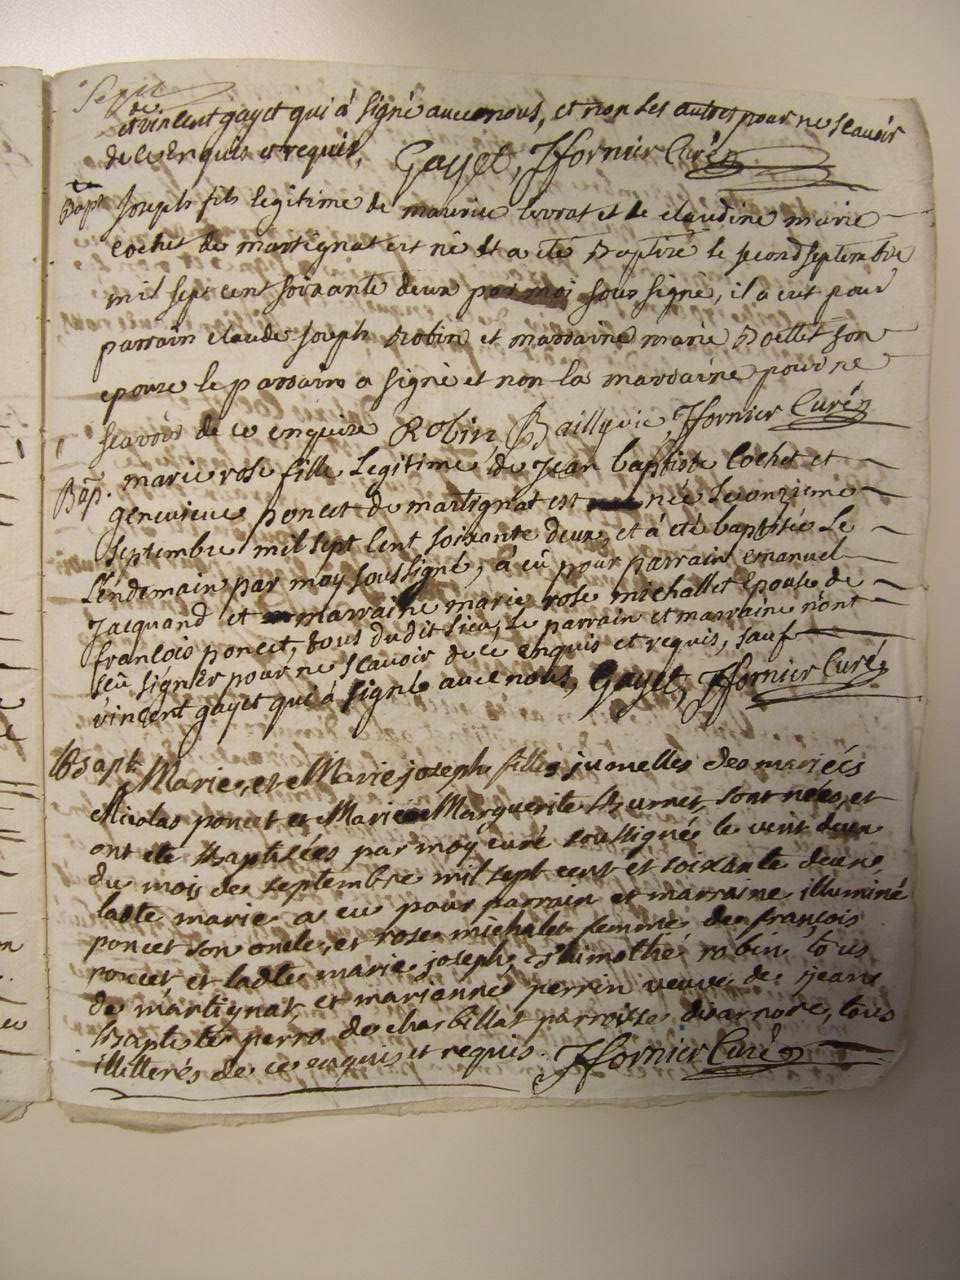 Sept
de
et vincent gayet qui à signé avec nous, et non les autres pour ne scavoir
de ce enquis et requis, Gayet, JFornier Curé
Bapt Joseph fils legitime de maurice livrat et de claudine marie
cochet de martignat est né et a ete Baptisé le second septembre
mil sept cent soixante deux par moi sous signé, il a eut pour
parrain claude Joseph Robin et marraine marie Boellet son
epouze le parrain a signé et non la marraine pour ne
scavoir de ce enquise Robin, JFornier Curé
Bap. marie rose fille Legitime de Jean baptiste Cochet et
genevieve poncet de martignat est née Le onzieme
septembre mil sept cent soixante deux, et à été baptisée Le
Lendemain par moy soussigné, à eû pour parrain emanuel
Jacquand et marraine marie rose michallet Epouse de
francois poncet, tous dudit lieu, Le parrain et marraine n'ont
seû signer pour ne scavoir de ce enquis et requis, sauf
vincent gayet qui à signé avec nous, Gayet, JFornier Curé
Bapt Marie, et Marie joseph filles jumelles des mariés
Nicolas poncet et Marie Marguerite Burnet sont nées, et
ont ete Baptisées par moy curé soussigné le vint deux
du mois de septembre mil sept cent et soixante deux,
ladte marie a eu pour parrain et marraine illuminé
poncet son oncle, et rose michalet femme de françois
poncet, et ladte marie joseph, thimothé robin tous
de martignat, et marianne perrin veuve de jean
Baptiste perro de charbillat parroisse d'arnore, tous
illitterés de ce enquis et requis. JFornier Curé